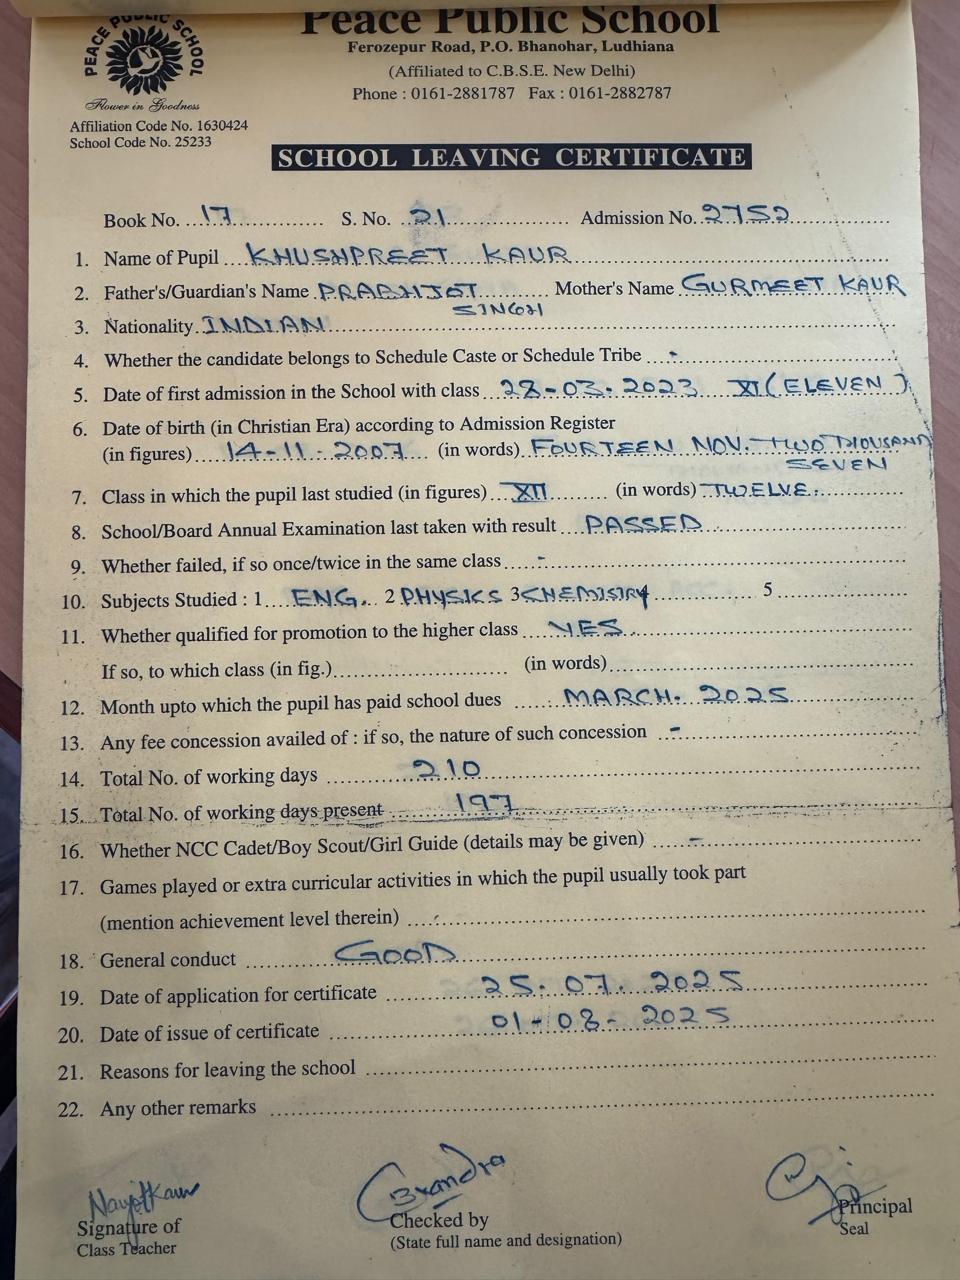 Peace Public School
PEACE PUBLIC SCHOOL
Ferozepur Road, P.O. Bhanohar, Ludhiana
(Affiliated to C.B.S.E. New Delhi)
Flower in Goodness
Phone : 0161-2881787 Fax : 0161-2882787
Affiliation Code No. 1630424
School Code No. 25233
SCHOOL LEAVING CERTIFICATE
Book No. 17 S. No. 21 Admission No. 2752
1. Name of Pupil KHUSHPREET KAUR
2. Father's/Guardian's Name PRABHJOT SINGH Mother's Name GURMEET KAUR
3. Nationality INDIAN
4. Whether the candidate belongs to Schedule Caste or Schedule Tribe -
5. Date of first admission in the School with class 28-03-2023 XI (ELEVEN)
6. Date of birth (in Christian Era) according to Admission Register
(in figures) 14-11-2007 (in words) FOURTEEN NOV. TWO THOUSAND
SEVEN
7. Class in which the pupil last studied (in figures) XII (in words) TWELVE
8. School/Board Annual Examination last taken with result PASSED
9. Whether failed, if so once/twice in the same class -
10. Subjects Studied : 1 ENG. 2 PHYSICS 3 CHEMISTRY 5
11. Whether qualified for promotion to the higher class YES
If so, to which class (in fig.) (in words)
12. Month upto which the pupil has paid school dues MARCH. 2025
13. Any fee concession availed of : if so, the nature of such concession -
14. Total No. of working days 210
15. Total No. of working days present 197
16. Whether NCC Cadet/Boy Scout/Girl Guide (details may be given) -
17. Games played or extra curricular activities in which the pupil usually took part
(mention achievement level therein)
18. General conduct GOOD
19. Date of application for certificate 25.07.2025
20. Date of issue of certificate 01-08-2025
21. Reasons for leaving the school
22. Any other remarks
Navjot Kaur
Signature of
Class Teacher
Chandra
Checked by
(State full name and designation)
Principal
Seal